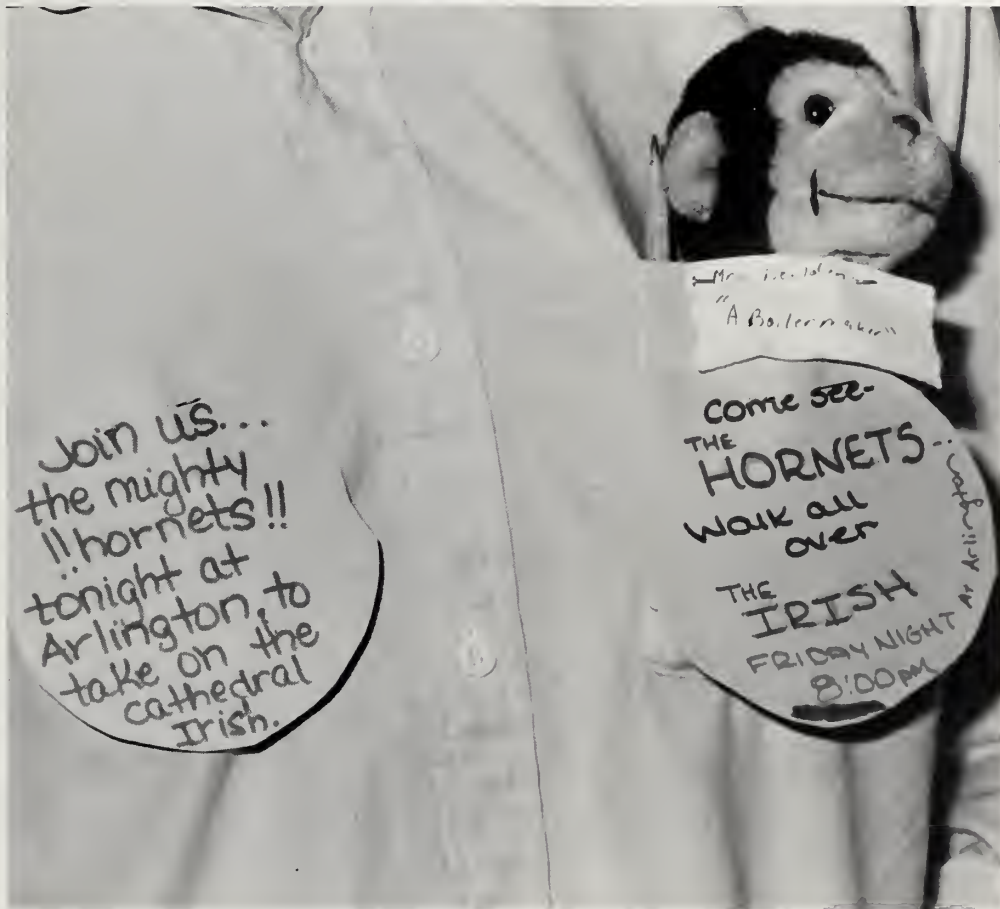 Join us...
the mighty
!!hornets!!
tonight at
Arlington, to
take on the
cathedral
Irish.
Mr.
"A Boilermaker"
Come see-
THE
HORNETS...
Walk all
over
THE
IRISH
FRIDAY NIGHT
8:00 PM
At Arlington